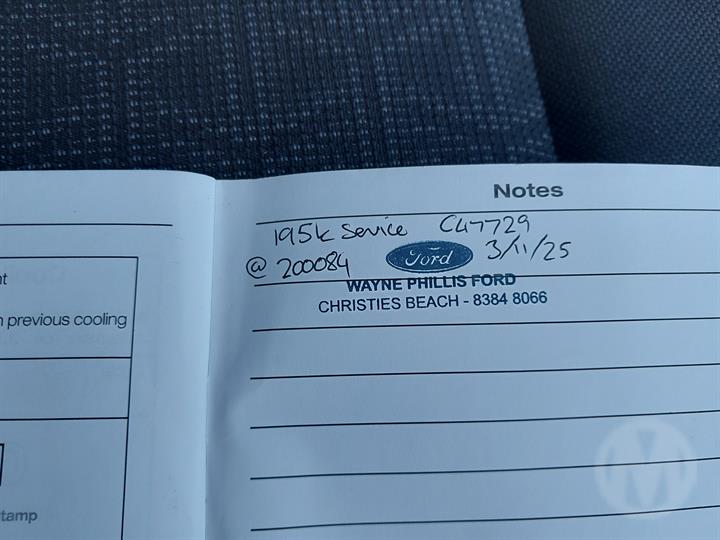 Notes
195k Service C47729
@ 200084 Ford 3/11/25
WAYNE PHILLIS FORD
CHRISTIES BEACH - 8384 8066
previous cooling
tamp
M